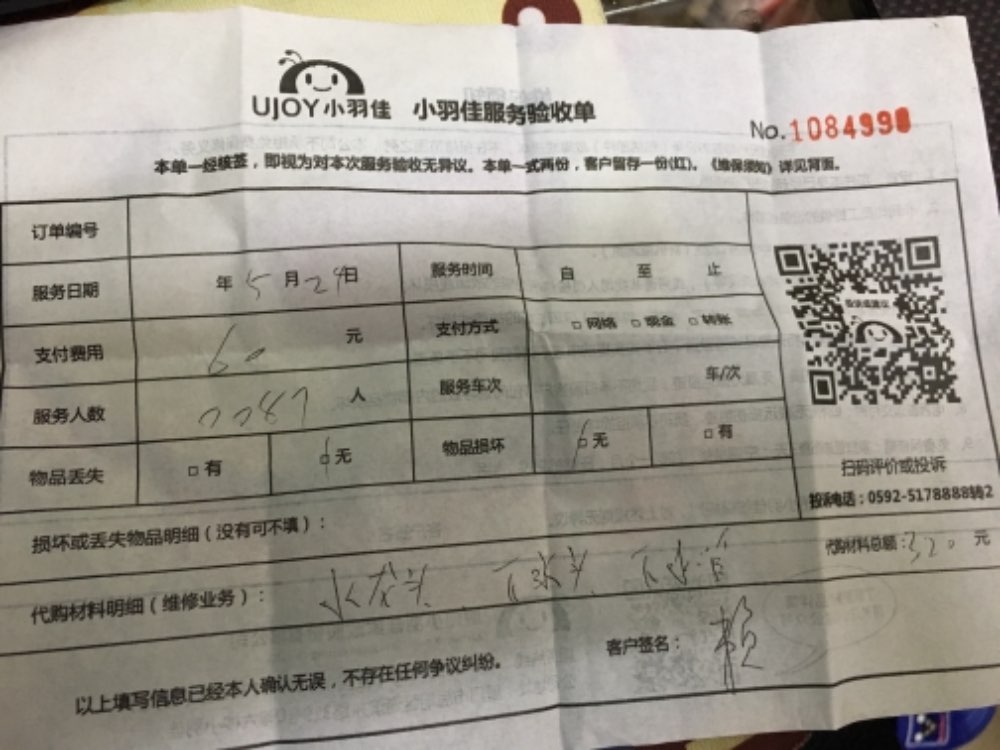 UJOY小羽佳 小羽佳服务验收单
No.1084998
本单一经核签，即视为对本次服务验收无异议。本单一式两份，客户留存一份(红)。《维保须知》详见背面。
订单编号
服务日期 年5月24日 服务时间 自 至 止
支付费用 60 元 支付方式 □网络 □现金 □转账
服务人数 2287 人 服务车次 车/次
物品丢失 □有 □无 物品损坏 □无 □有
投诉或建议
扫码评价或投诉
投诉电话：0592-5178888转2
损坏或丢失物品明细（没有可不填）：
代购材料总额：320元
代购材料明细（维修业务）： 水龙头、下水头 下水管
客户签名： 赖
以上填写信息已经本人确认无误，不存在任何争议纠纷。